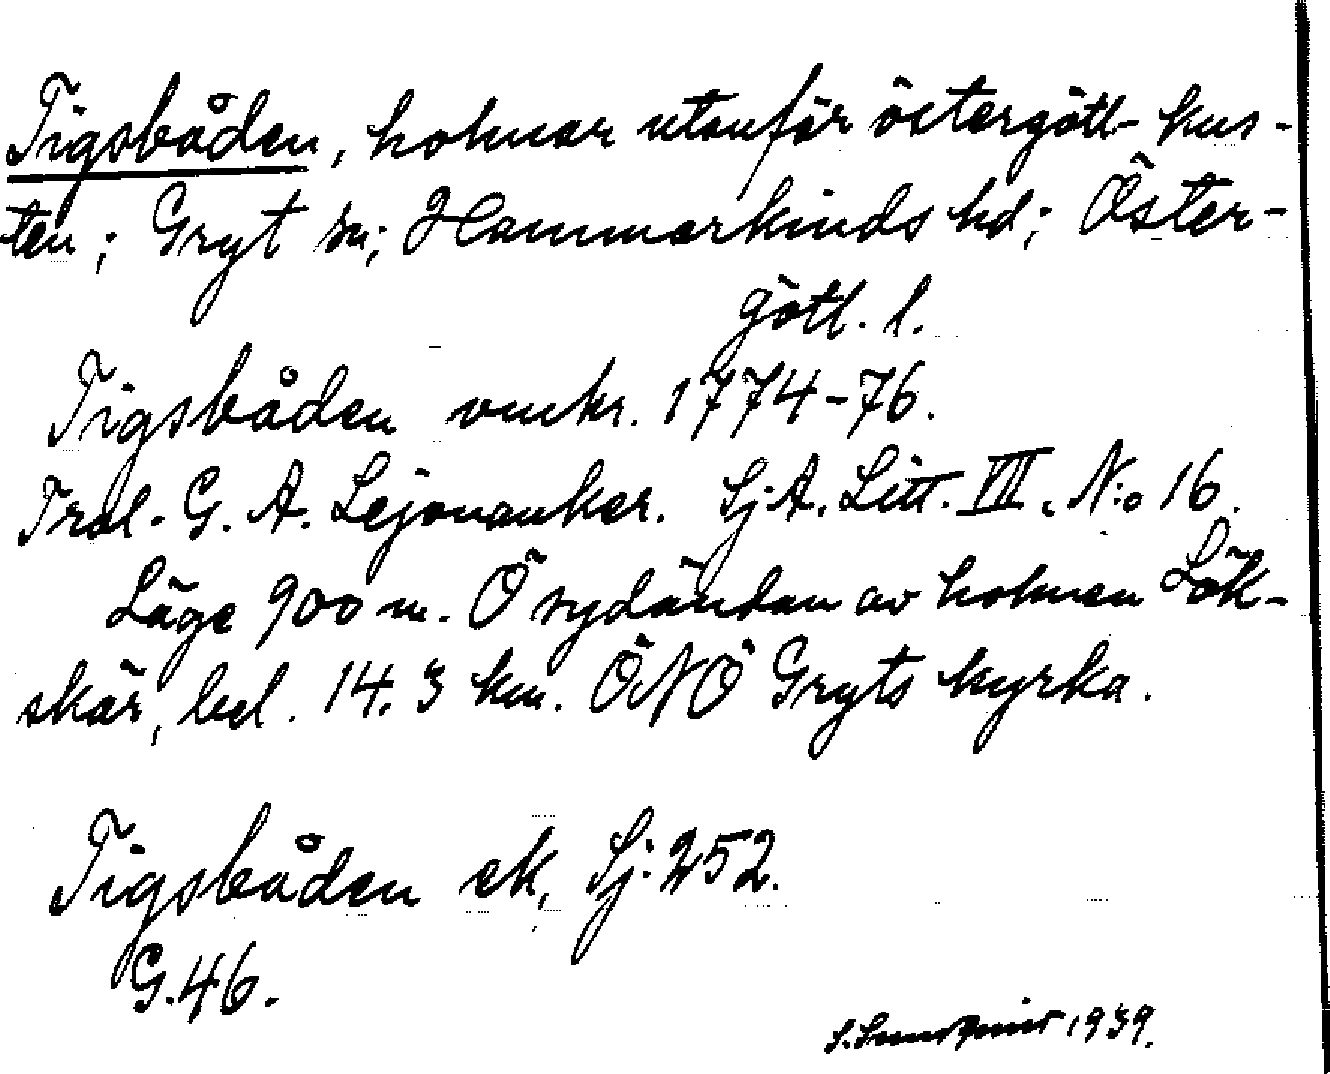 Tigsbåden, holmar utanför östergötl. kus-
ten; Gryt sn; Hammarkinds hd; Öster-
götl. l.
Tigsbåden omkr. 1774-76.
Trol. G. A. Lejonanker. Sj.A. Litt. III. N:o 16.
Läge 900 m. Ö sydändan av holmen Lök-
skär, bel. 14.3 km. ÖNÖ Gryts kyrka.
Tigsbåden ek, Sj. 252.
G.46.
S. 1939.